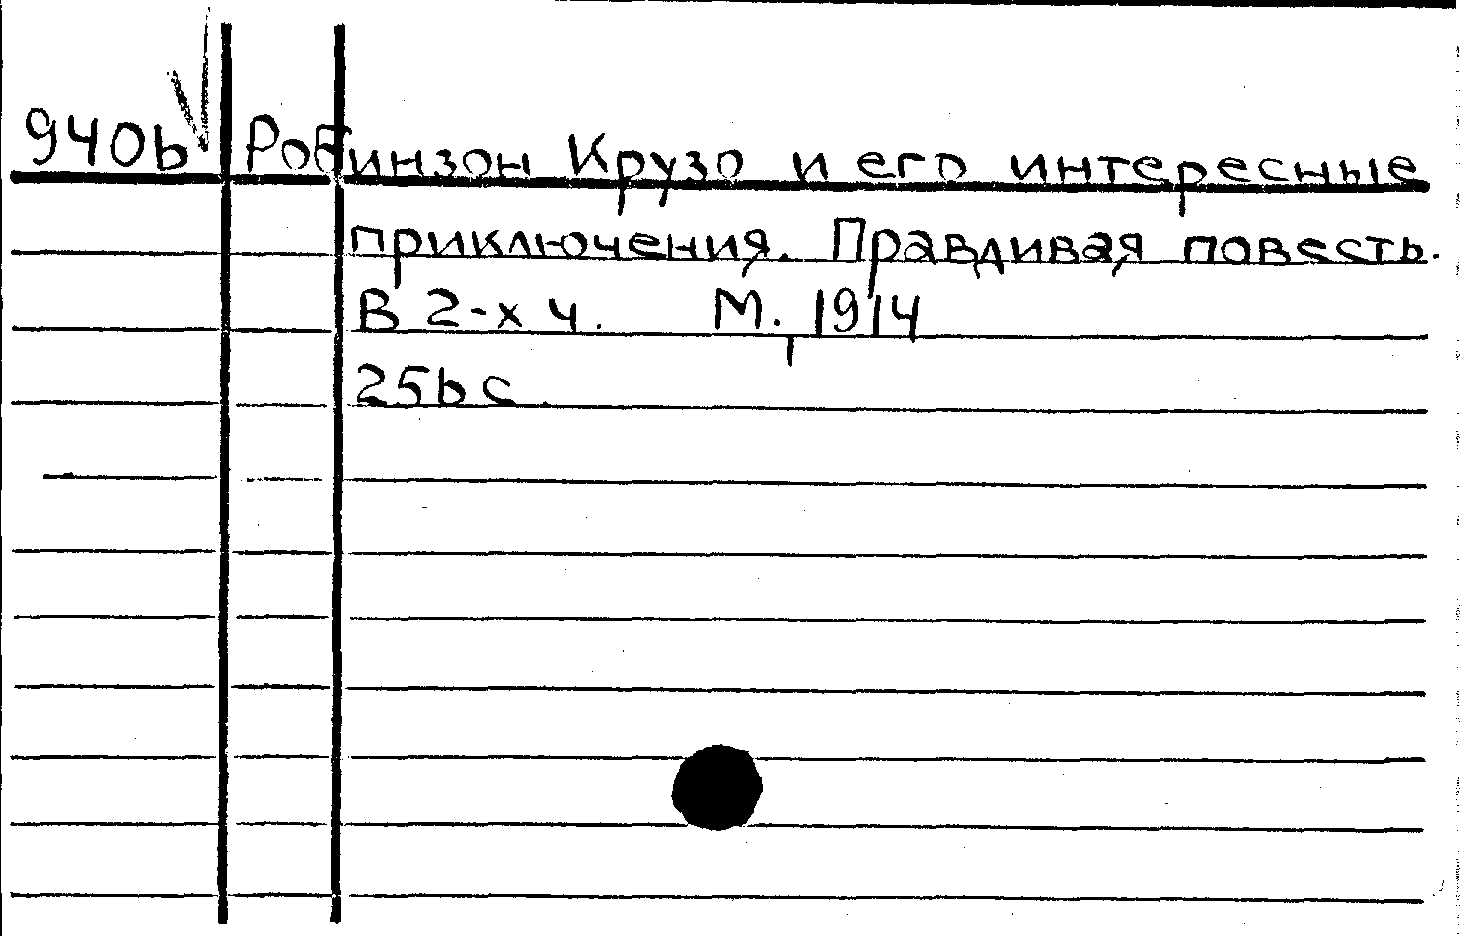 940b Робинзон Крузо и его интересные
приключения. Правдивая повесть.
В 2-х ч. М., 1914
256 с.